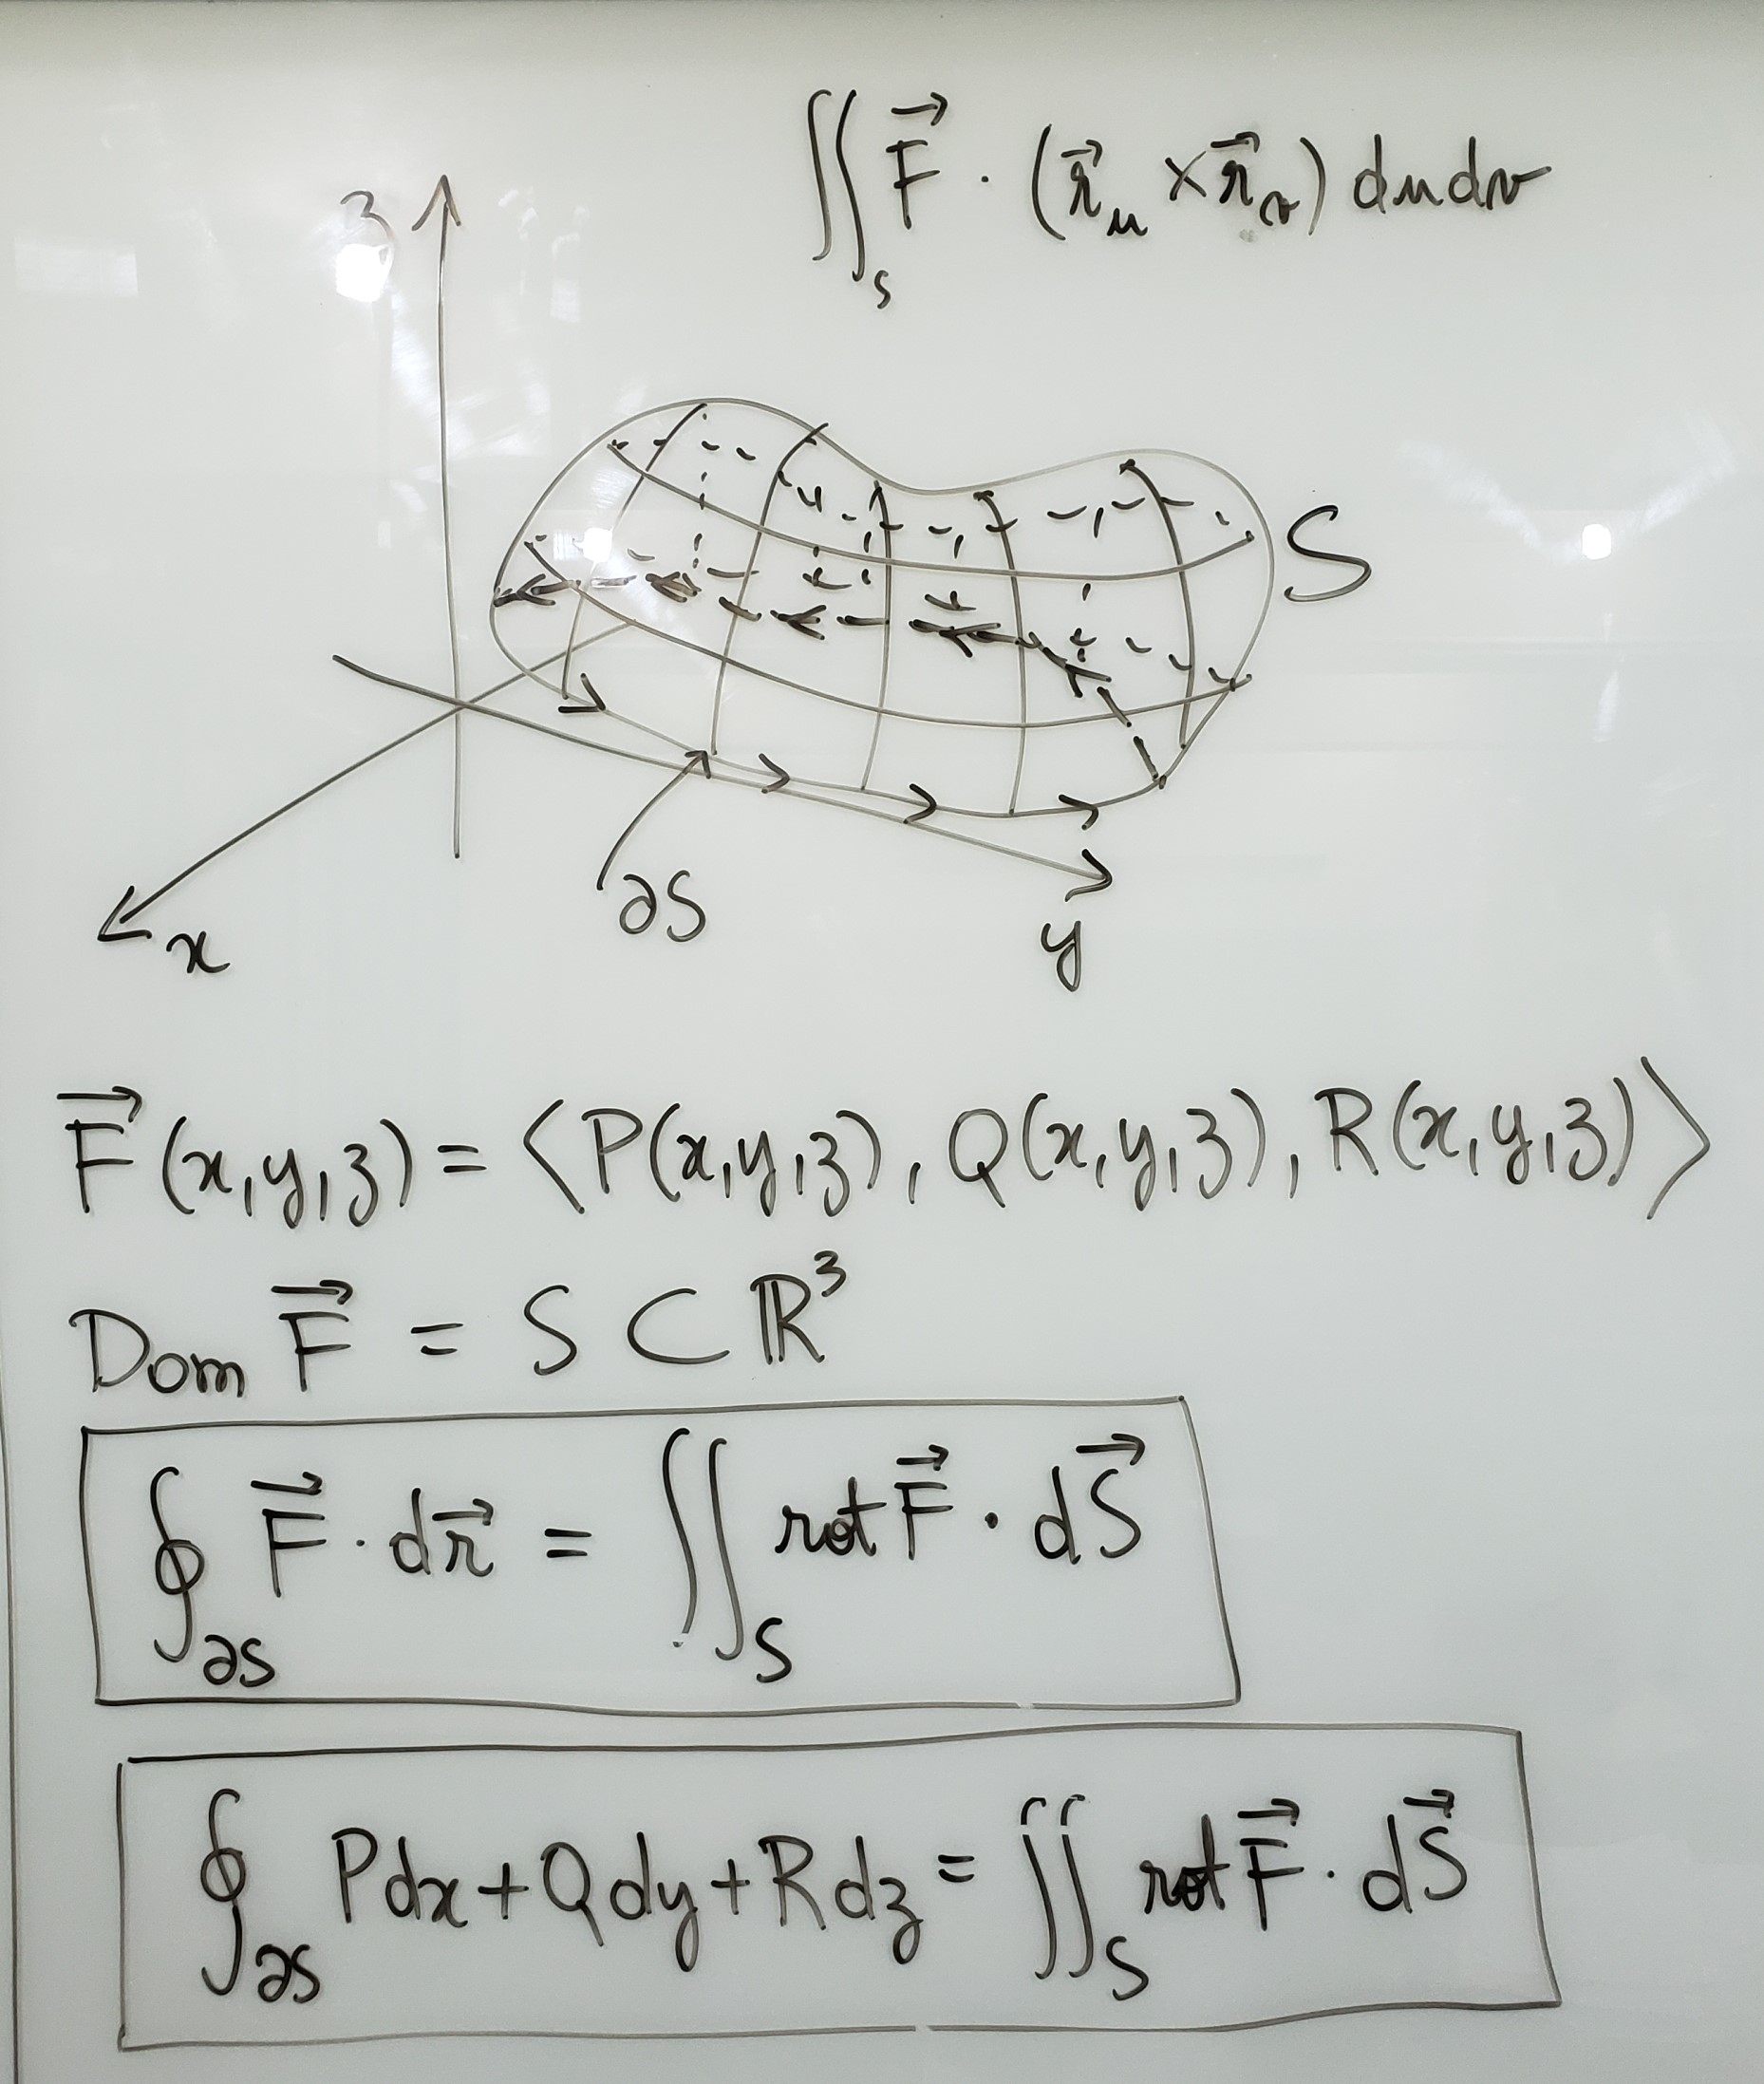 ∬_S F⃗ · (r⃗_u × r⃗_v) du dv
z
S
∂S
x
y
F⃗(x,y,z) = ⟨P(x,y,z), Q(x,y,z), R(x,y,z)⟩
Dom F⃗ = S ⊂ ℝ³
∮_∂S F⃗ · dr⃗ = ∬_S rot F⃗ · dS⃗
∮_∂S Pdx + Qdy + Rdz = ∬_S rot F⃗ · dS⃗